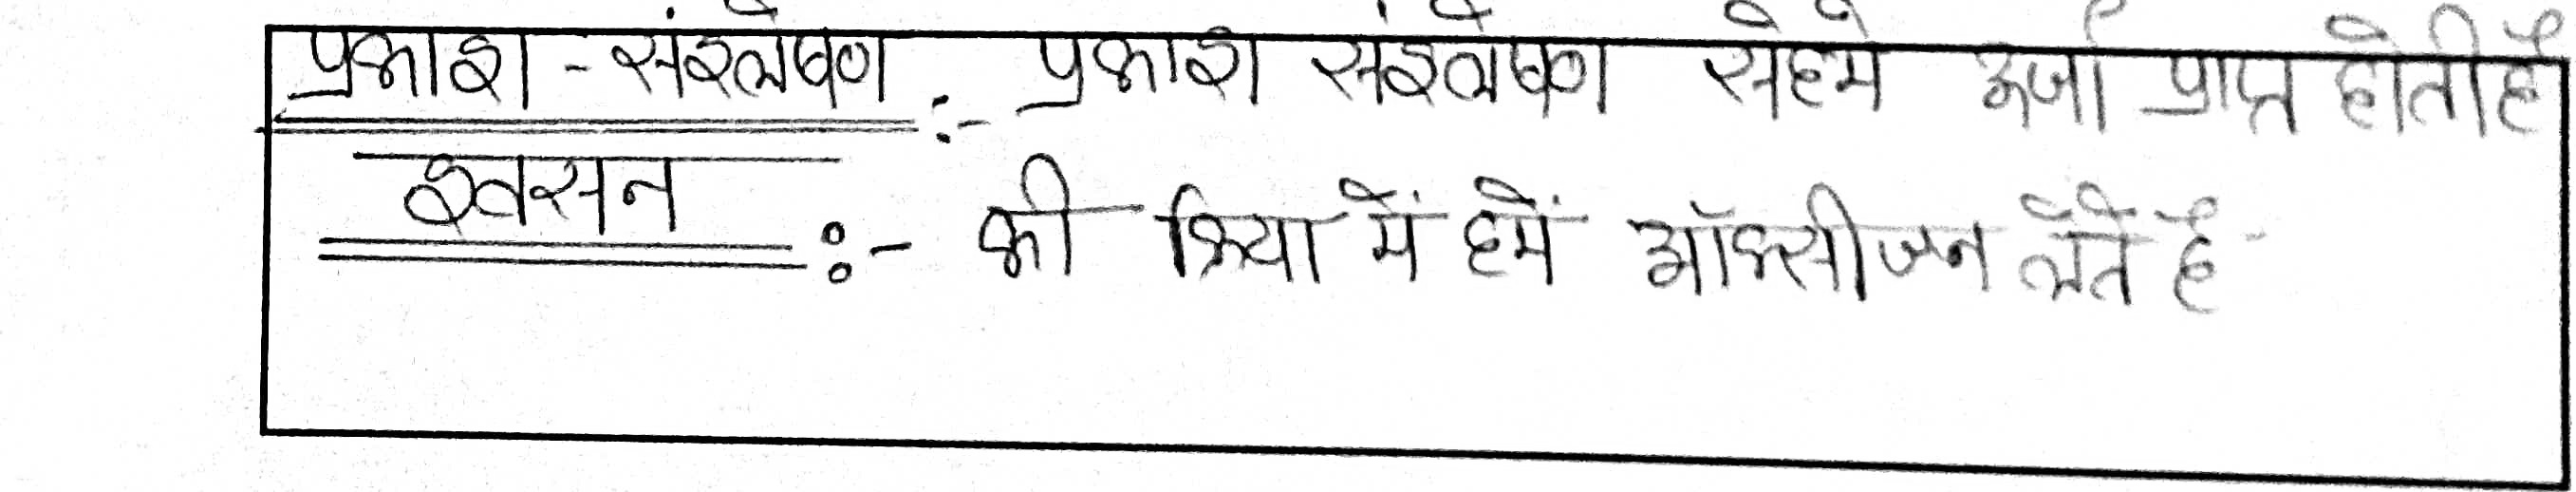 प्रकाश - संश्लेषण :- प्रकाश संश्लेषण सेहमे ऊर्जा प्राप्त होतीहै
श्वसन :- की क्रिया में हमें ऑक्सीजन लेते है